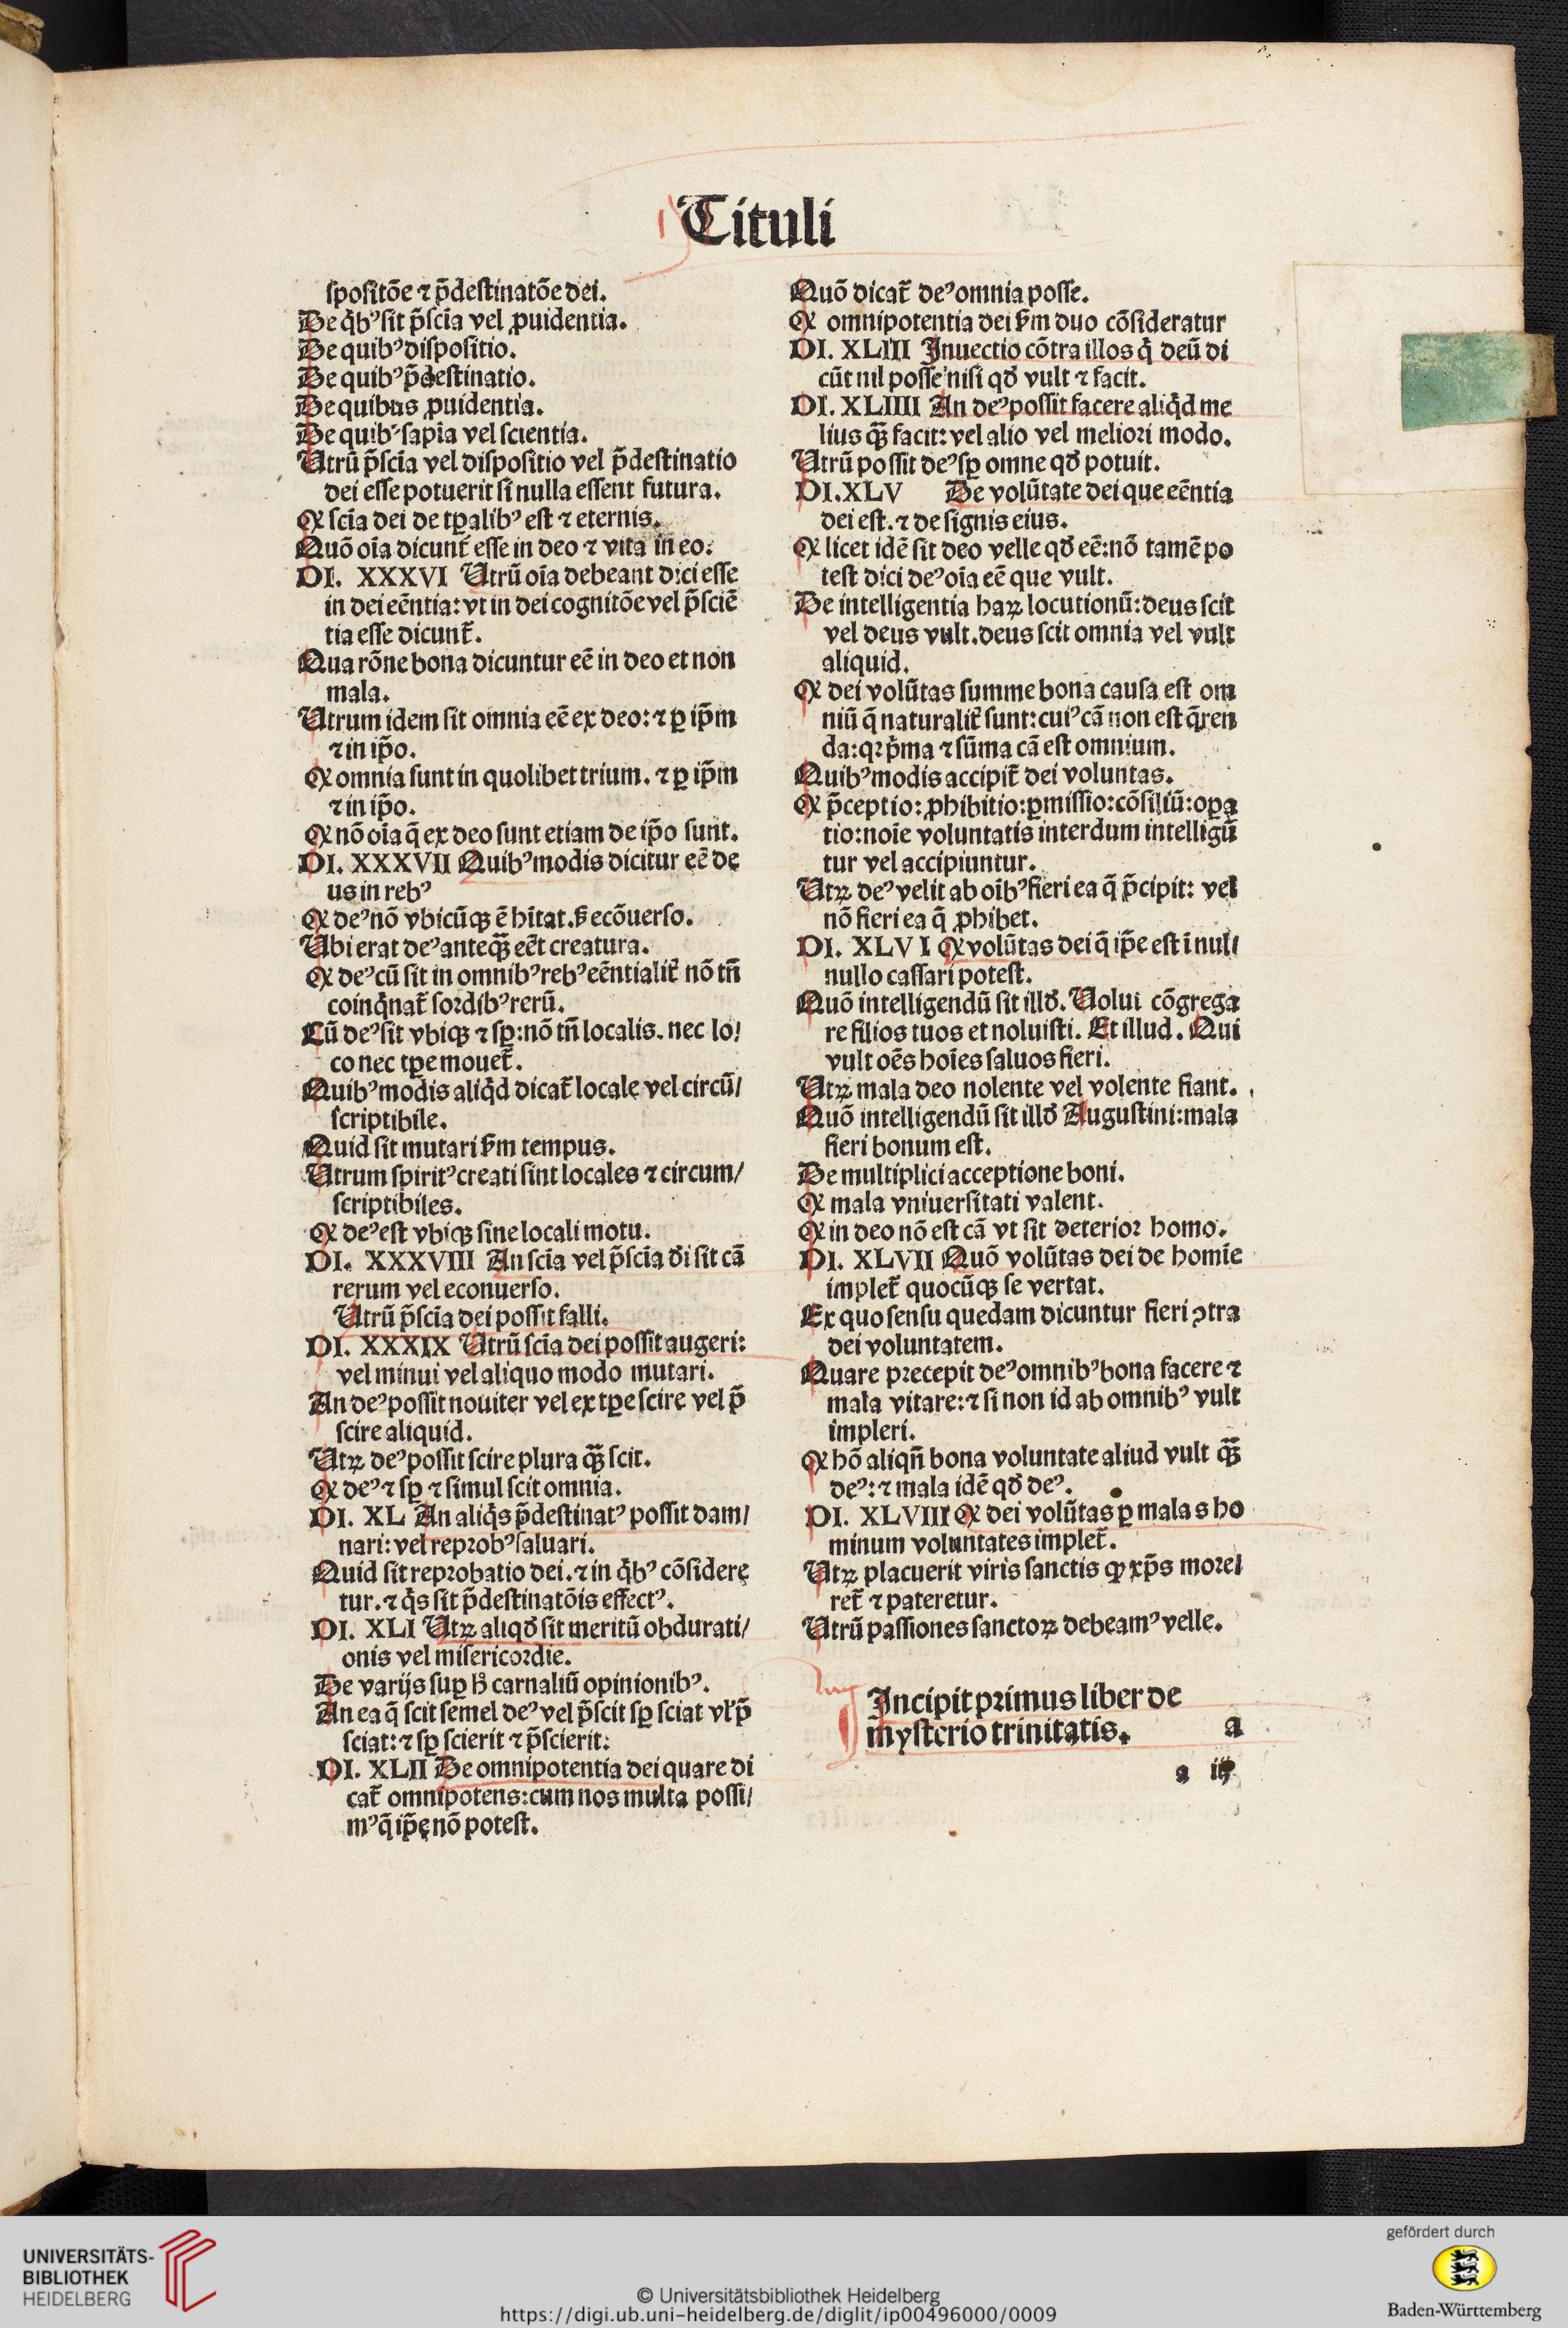 Tituli
ſpoſitõe ⁊ p̃deſtinatõe dei.
De q̃bꝰ ſit p̃ſcĩa vel ꝓuidentia.
De quibꝰ diſpoſitio.
De quibꝰ p̃deſtinatio.
De quibus ꝓuidentia.
De quibꝰ ſapĩa vel ſcientia.
Utrũ p̃ſcĩa vel diſpoſitio vel p̃deſtinatio
dei eſſe potuerit ſi nulla eſſent futura.
Ꝙ ſcĩa dei de tꝑalibꝰ eſt ⁊ eternis.
Quõ oĩa dicunt̃ eſſe in deo ⁊ vita in eo.
DI. XXXVI Utrũ oĩa debeant dici eſſe
in dei eẽntia: vt in dei cognitõe vel p̃ſciẽ
tia eſſe dicunt̃.
Qua rõne bona dicuntur eẽ in deo et non
mala.
Utrum idem ſit omnia eẽ ex deo: ⁊ ꝑ ip̃m
⁊ in ip̃o.
Ꝙ omnia ſunt in quolibet trium. ⁊ ꝑ ip̃m
⁊ in ip̃o.
Ꝙ nõ oĩa q̃ ex deo ſunt etiam de ip̃o ſunt.
DI. XXXVII Quibꝰ modis dicitur eẽ de
us in rebꝰ
Ꝙ deꝰ nõ vbicũqꝫ ẽ hĩtat. ſꝫ ecõuerſo.
Ubi erat deꝰ anteqꝫ̃ eẽt creatura.
Ꝙ deꝰ cũ ſit in omnibꝰ rebꝰ eẽntialit̃ nõ tñ
coinq̃nat̃ ſordibꝰ rerũ.
Cũ deꝰ ſit vbiqꝫ ⁊ ſꝑ: nõ tñ localis. nec lo/
co nec tꝑe mouet̃.
Quibꝰ modis aliq̃d dicat̃ locale vel circũ/
ſcriptibile.
Quid ſit mutari ẜm tempus.
Utrum ſpiritꝰ creati ſint locales ⁊ circum/
ſcriptibiles.
Ꝙ deꝰ eſt vbiqꝫ ſine locali motu.
DI. XXXVIII An ſcĩa vel p̃ſcĩa d̃i ſit cã
rerum vel econuerſo.
Utrũ p̃ſcĩa dei poſſit falli.
DI. XXXIX Utrũ ſcĩa dei poſſit augeri:
vel minui vel aliquo modo mutari.
An deꝰ poſſit nouiter vel ex tꝑe ſcire vel p̃
ſcire aliquid.
Utꝝ deꝰ poſſit ſcire plura qꝫ̃ ſcit.
Ꝙ deꝰ ⁊ ſꝑ ⁊ ſimul ſcit omnia.
DI. XL An aliq̃s p̃deſtinatꝰ poſſit dam/
nari: vel reprobꝰ ſaluari.
Quid ſit reprobatio dei. ⁊ in q̃bꝰ cõſidere
tur. ⁊ q̃s ſit p̃deſtinatõis effectꝰ.
DI. XLI Utꝝ aliqđ ſit meritũ obdurati/
onis vel miſericordie.
De varijs ſuꝑ h̃ carnaliũ opinionibꝰ.
An ea q̃ ſcit ſemel deꝰ vel p̃ſcit ſꝑ ſciat vl̃ p̃
ſciat: ⁊ ſꝑ ſcierit ⁊ p̃ſcierit:
DI. XLII De omnipotentia dei quare di
cat̃ omnipotens: cum nos multa poſſi/
mꝰ q̃ ip̃e nõ poteſt.
Quõ dicat̃ deꝰ omnia poſſe.
Ꝙ omnipotentia dei ẜm duo cõſideratur
DI. XLIII Inuectio cõtra illos q̃ deũ di
cũt nil poſſe niſi qđ vult ⁊ facit.
DI. XLIIII An deꝰ poſſit facere aliq̃d me
lius qꝫ̃ facit: vel alio vel meliori modo.
Utrũ poſſit deꝰ ſꝑ omne qđ potuit.
DI. XLV De volũtate dei que eẽntia
dei eſt. ⁊ de ſignis eius.
Ꝙ licet idẽ ſit deo velle qđ eẽ: nõ tamẽ po
teſt dici deꝰ oĩa eẽ que vult.
De intelligentia haꝝ locutionũ: deus ſcit
vel deus vult. deus ſcit omnia vel vult
aliquid.
Ꝙ dei volũtas ſumme bona cauſa eſt om
niũ q̃ naturalit̃ ſunt: cuiꝰ cã non eſt q̃ren
da: qꝛ p̃ma ⁊ ſũma cã eſt omnium.
Quibꝰ modis accipit̃ dei voluntas.
Ꝙ p̃ceptio: ꝓhibitio: ꝑmiſſio: cõſiliũ: oꝑa
tio: noĩe voluntatis interdum intelligũ
tur vel accipiuntur.
Utꝝ deꝰ velit ab oĩbꝰ fieri ea q̃ p̃cipit: vel
nõ fieri ea q̃ ꝓhibet.
DI. XLV I Ꝙ volũtas dei q̃ ip̃e eſt ĩ nul/
nullo caſſari poteſt.
Quõ intelligendũ ſit illđ. Uolui cõgrega
re filios tuos et noluiſti. Et illud. Qui
vult oẽs hoĩes ſaluos fieri.
Utꝝ mala deo nolente vel volente fiant.
Quõ intelligendũ ſit illđ Auguſtini: mala
fieri bonum eſt.
De multiplici acceptione boni.
Ꝙ mala vniuerſitati valent.
Ꝙ in deo nõ eſt cã vt ſit deterior homo.
DI. XLVII Quõ volũtas dei de homĩe
implet̃ quocũqꝫ ſe vertat.
Ex quo ſenſu quedam dicuntur fieri ꝯtra
dei voluntatem.
Quare precepit deꝰ omnibꝰ bona facere ⁊
mala vitare: ⁊ ſi non id ab omnibꝰ vult
impleri.
Ꝙ hõ aliqñ bona voluntate aliud vult qꝫ̃
deꝰ: ⁊ mala idẽ qđ deꝰ.
DI. XLVIII Ꝙ dei volũtas ꝑ malas ho
minum voluntates implet̃.
Utꝝ placuerit viris ſanctis ꝙ xp̃s morel
ret̃ ⁊ pateretur.
Utrũ paſſiones ſanctoꝝ debeamꝰ velle.
Incipit primus liber de
myſterio trinitatis. a
a iij
UNIVERSITÄTS-
BIBLIOTHEK
HEIDELBERG
© Universitätsbibliothek Heidelberg
https://digi.ub.uni-heidelberg.de/diglit/ip00496000/0009
gefördert durch
Baden-Württemberg